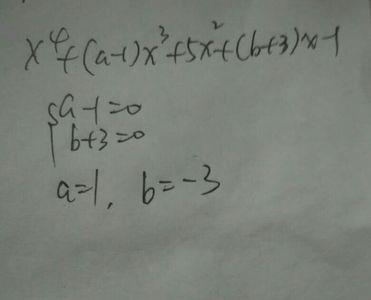 x⁴+(a-1)x³+5x²+(b+3)x-1
{a-1=0
b+3=0
a=1, b=-3